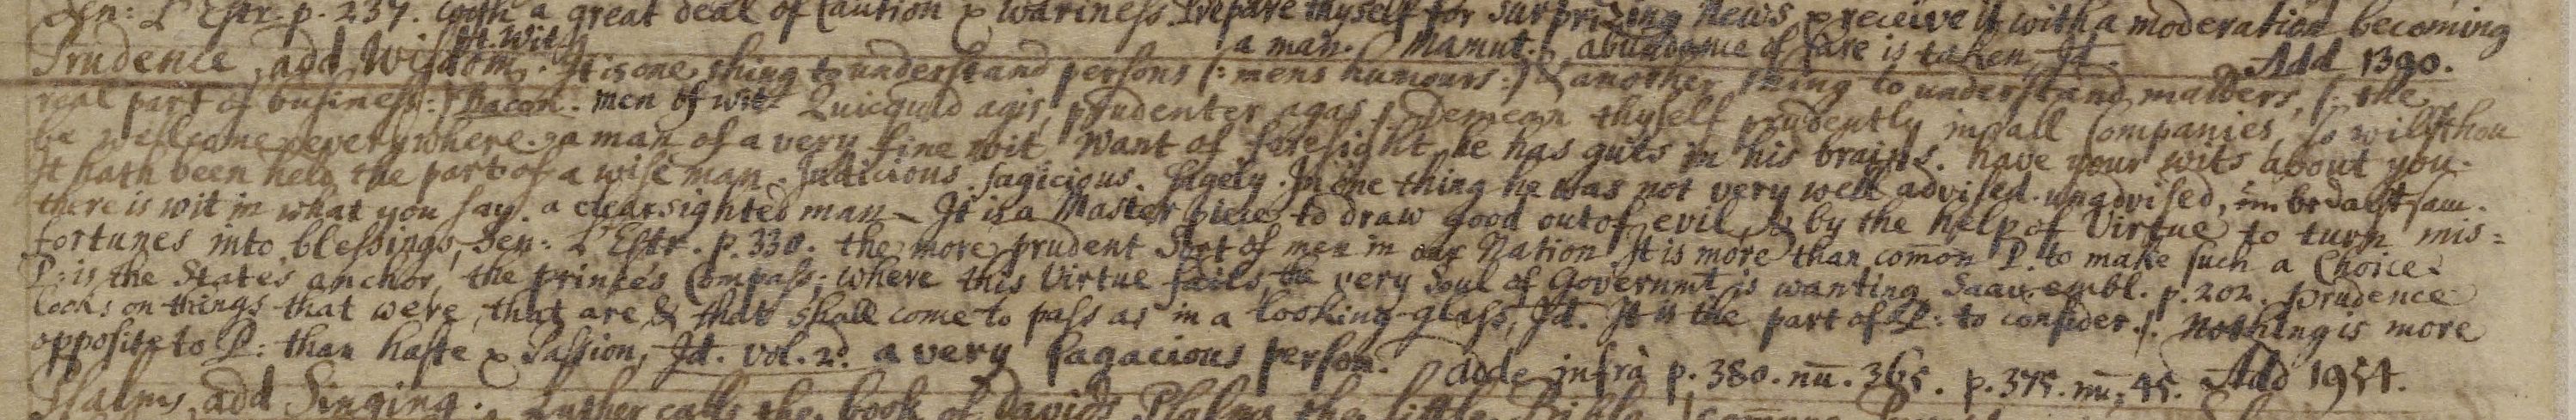 Sen: L'Estr. p. 237. with a great deal of Caution & wariness. Prepare thyself for surprizing news, & receive it with a moderation becoming
a man. Mamut. abundance of Care is taken, Id. Add 1390.
Prudence, add Wisdom. It. Wit. It is one thing to understand persons (: mens humours:) & another thing to understand matters, (: the
real part of business:) Bacon. men of wit Quicquid agis, prudenter agas. Demean thyself prudently in all Companies, so wilt thou
be wellcome everywhere. a man of a very fine wit Want of foresight, he has guts in his brains. have your wits about you.
It hath been held the part of a wise man. Judicious. sagicious. sagely. In one thing he was not very well advised. unadvised,
there is wit in what you say. a clearsighted man. It is a Master piece to draw good out of evil, & by the help of Virtue to turn mis=
fortunes into blessings, Sen: L'Estr. p. 330. the more prudent Sort of men in our Nation It is more than com̄on P. to make such a Choice.
P: is the States anchor, the princes Compass; where this Virtue fails, the very Soul of Governmt is wanting, Saav. embl. p. 202. prudence
looks on things that were, that are, & that shall come to pass as in a looking-glass, Id. It is the part of P: to consider. Nothing is more
opposite to P: than haste & Passion, Id. vol. 2d. a very sagacious person. adde infrà p. 380. nū. 365. p. 375. nū. 45. Add 1954.
Psalms, add Singing. Luther calls the book of Davids Psalms the little Bible